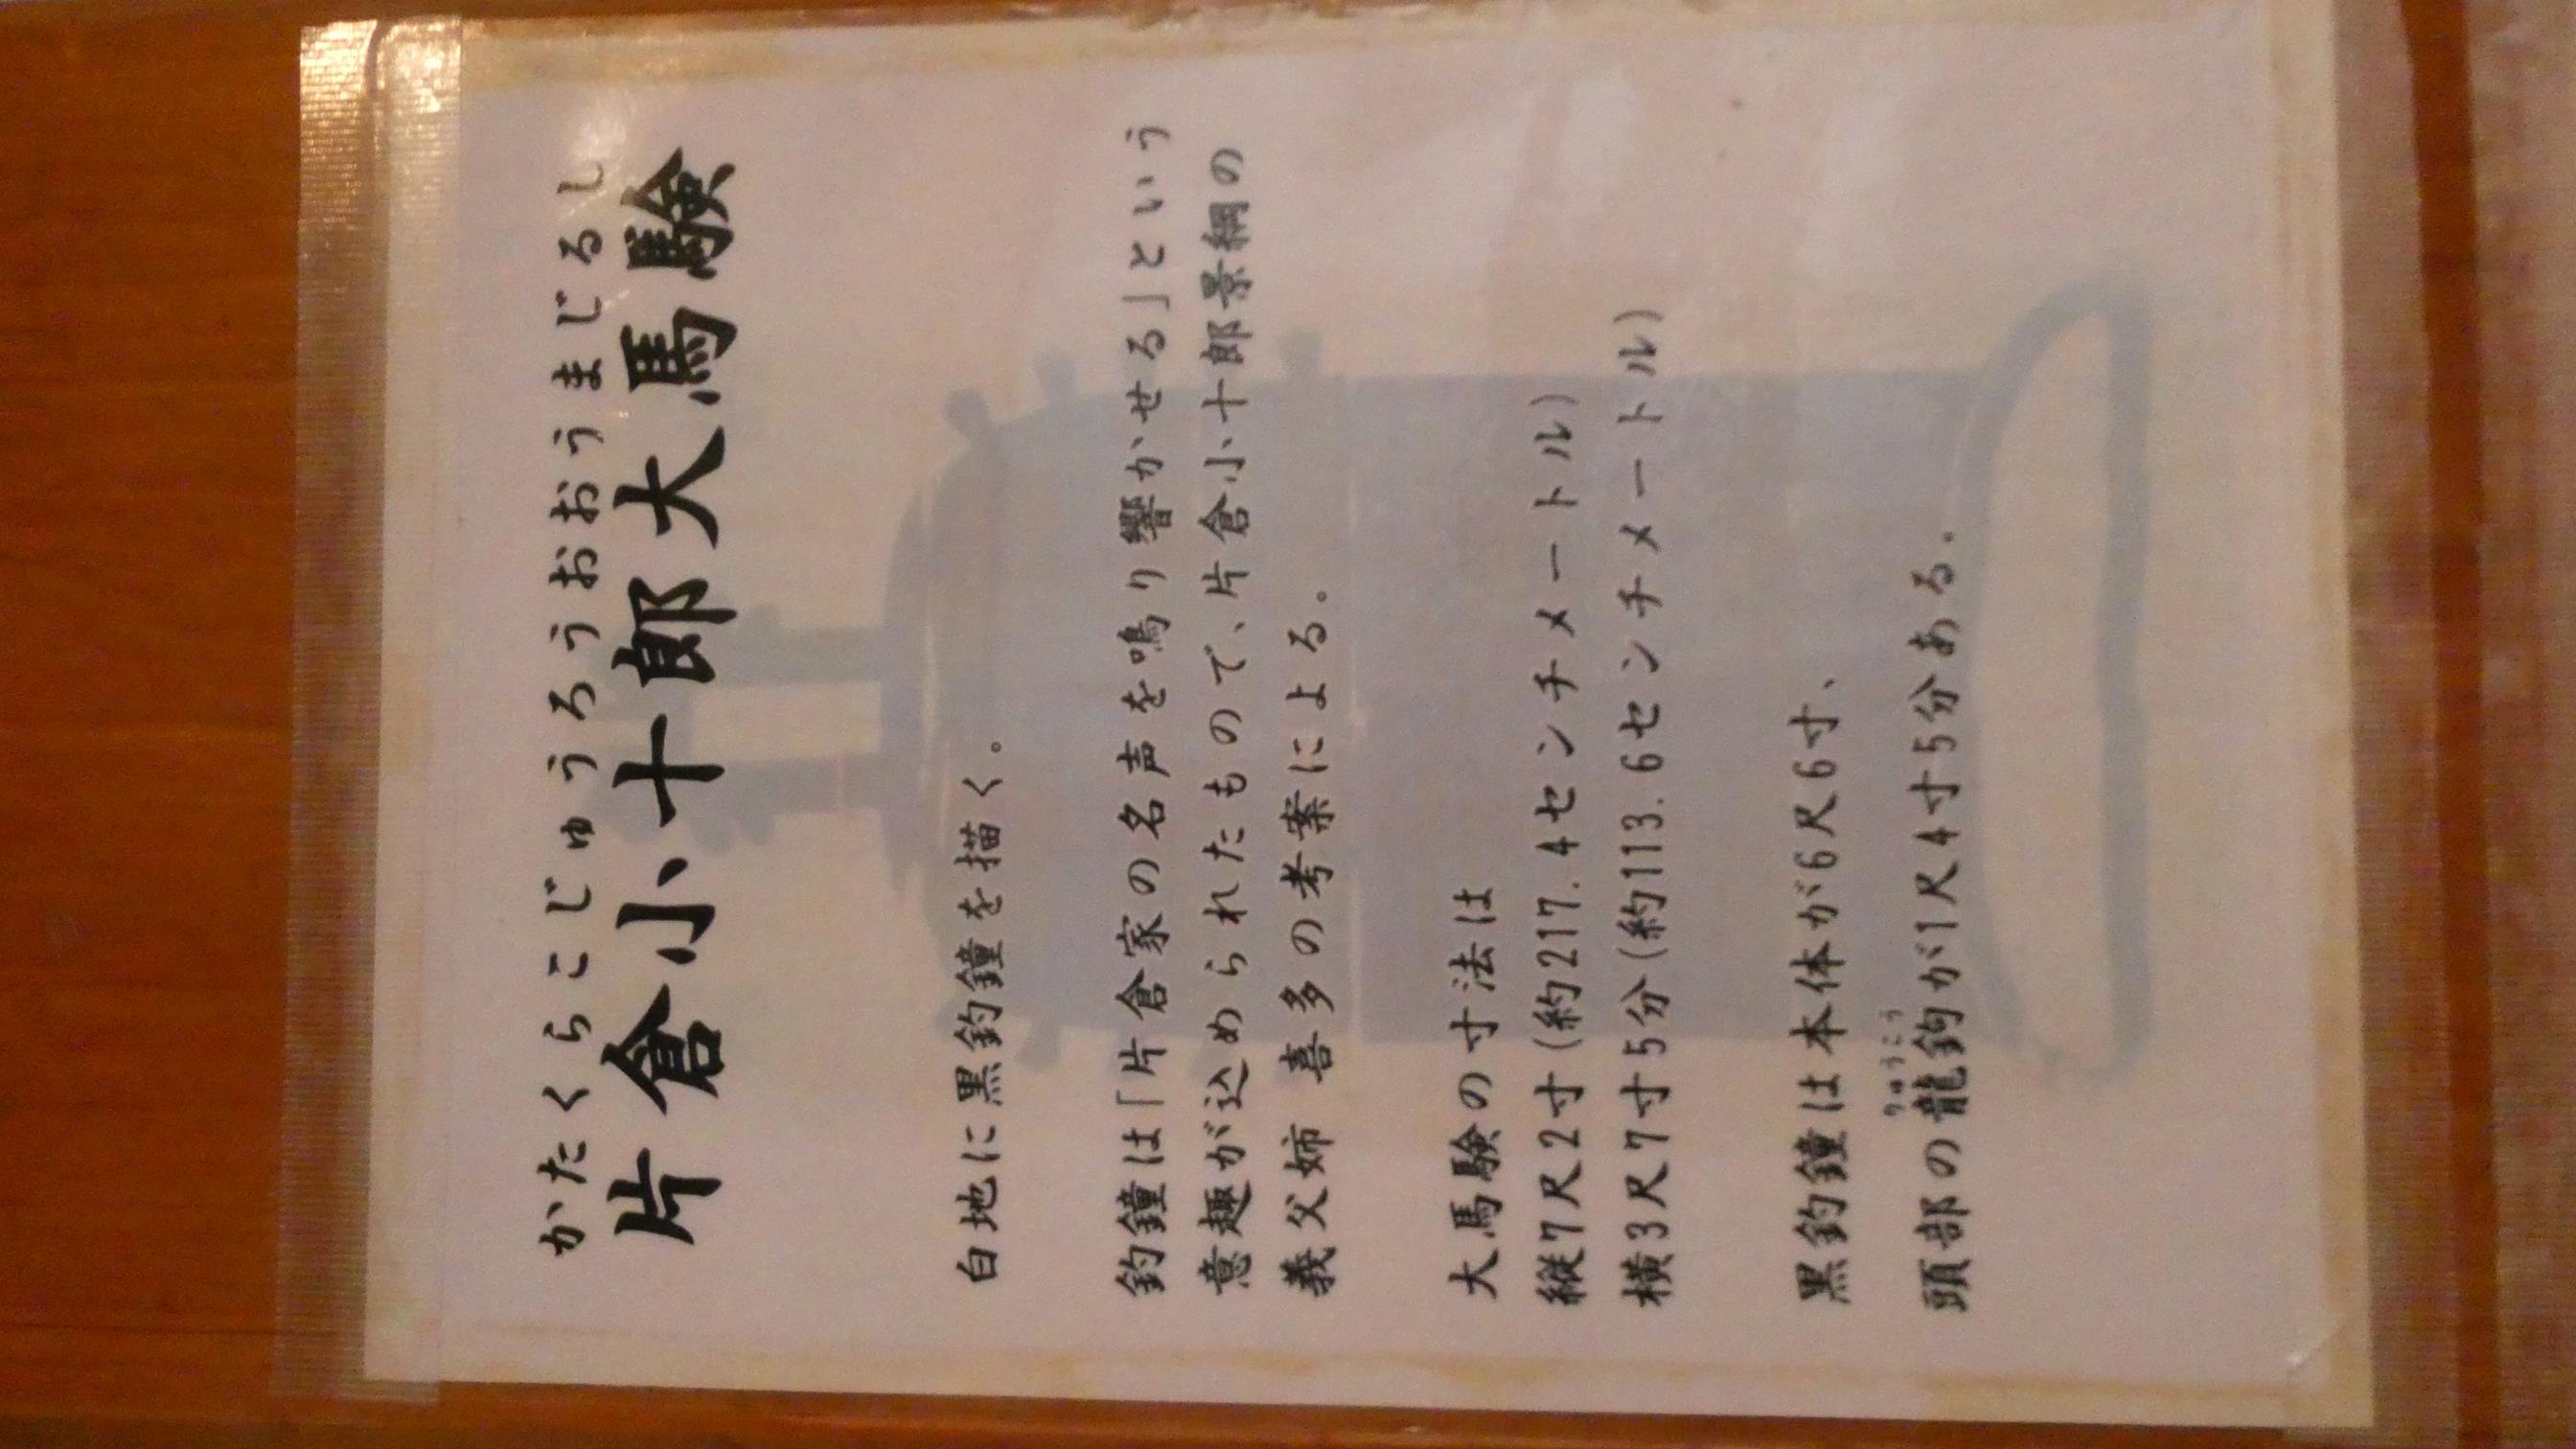 かたくらこじゅうろうおおうまじるし
片倉小十郎大馬験
白地に黒釣鐘を描く。
釣鐘は「片倉家の名声を鳴り響かせる」という
意趣が込められたもので、片倉小十郎景綱の
義父姉 喜多の考案による。
大馬験の寸法は
縦7尺2寸(約217.4センチメートル)
横3尺7寸5分(約113.6センチメートル)
黒釣鐘は本体が6尺6寸、
りゅうこう
頭部の龍鉤が1尺4寸5分ある。